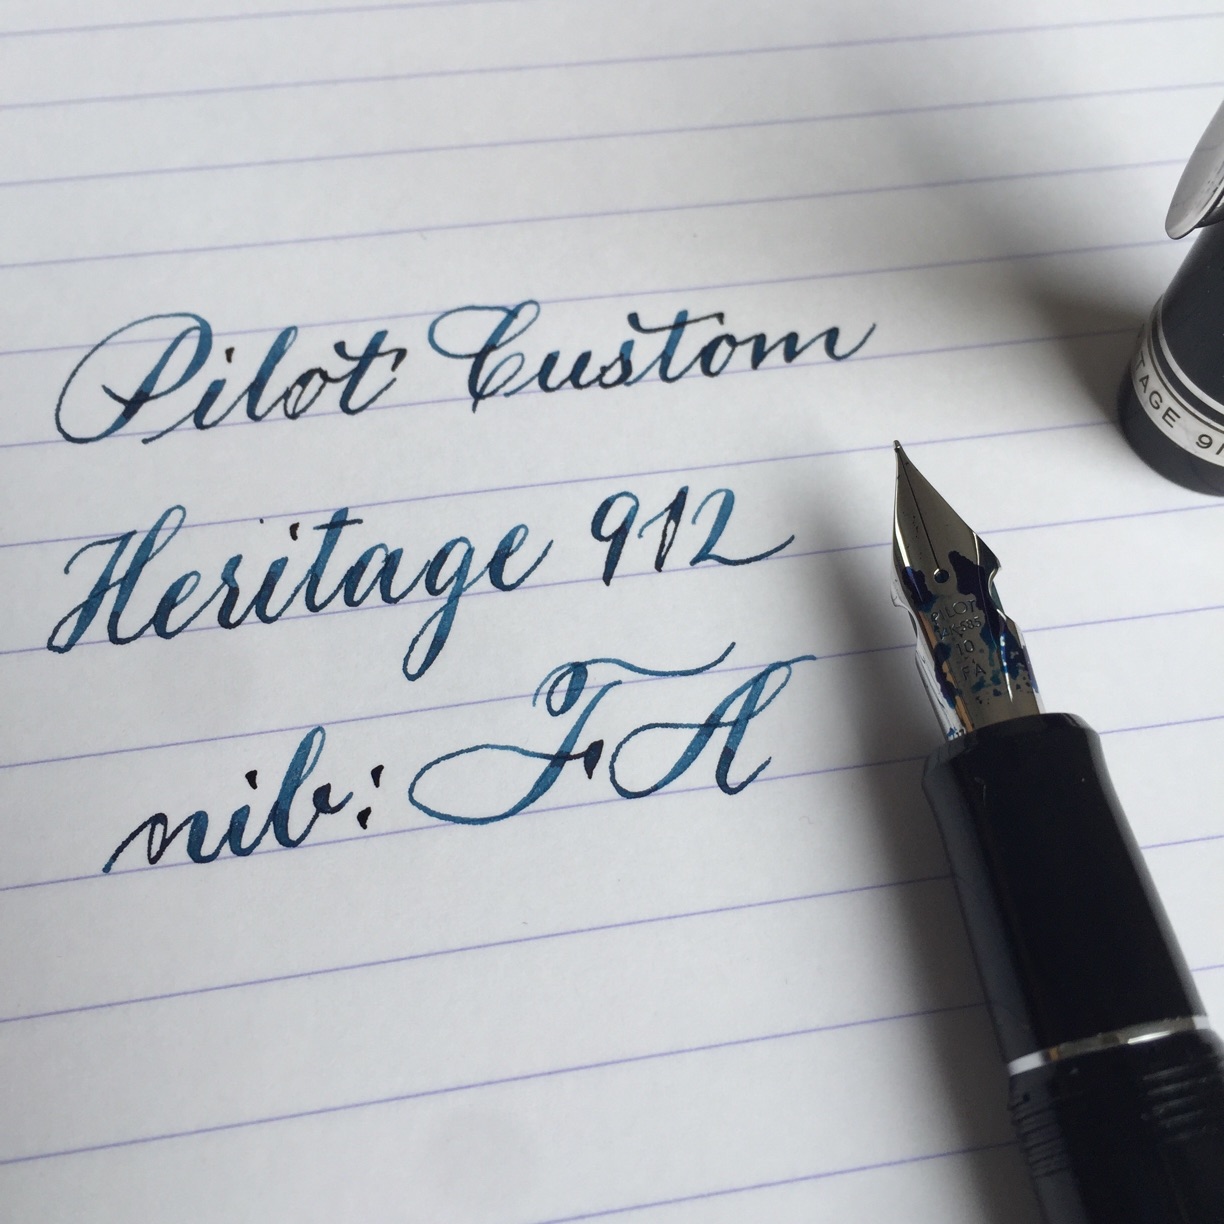 Pilot Custom
Heritage 912
nib: FA
PILOT
14K-585
10
FA
TAGE 91